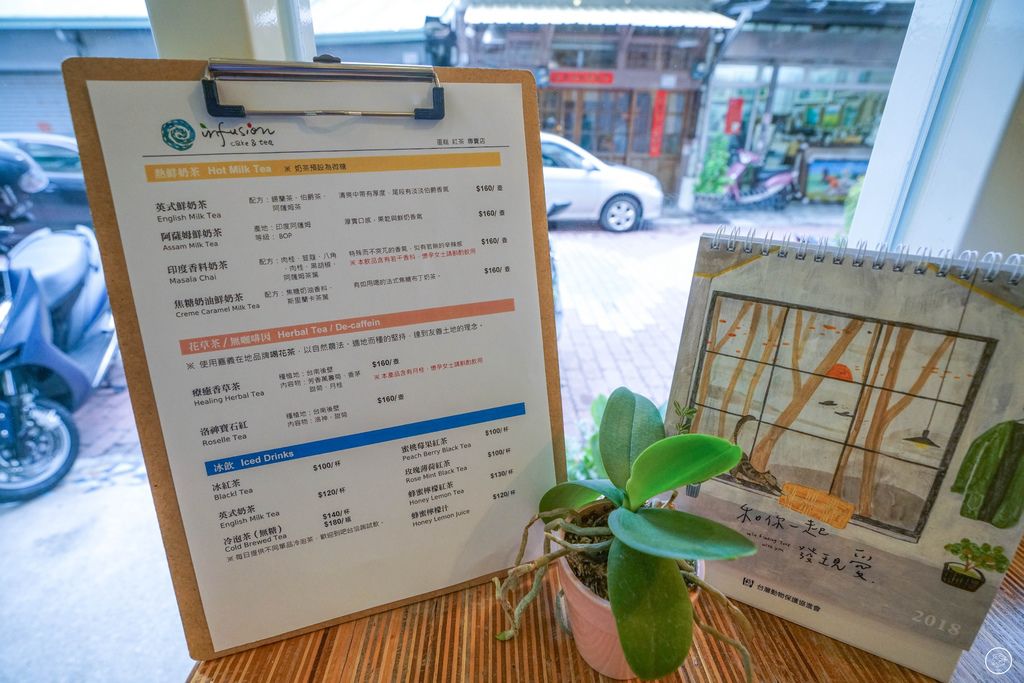 infusion
cake & tea
蛋糕 紅茶 專賣店
熱鮮奶茶 Hot Milk Tea ※ 奶茶預設為微糖
英式鮮奶茶 配方：錫蘭茶、伯爵茶、 清爽中帶有厚度，尾段有淡淡伯爵香氣 $160/ 壺
English Milk Tea 阿薩姆茶
阿薩姆鮮奶茶 產地：印度阿薩姆 厚實口感，果乾與鮮奶香氣 $160/ 壺
Assam Milk Tea 等級： BOP
印度香料奶茶 配方：肉桂、荳蔻、八角 特殊而不突兀的香氣，如有若無的辛辣感 $160/ 壺
Masala Chai 、肉桂、黑胡椒、 ※ 本飲品含有若干香料，懷孕女士請斟酌飲用
阿薩姆茶葉
焦糖奶油鮮奶茶 配方：焦糖奶油香料、 有如用喝的法式焦糖布丁奶茶。 $160/ 壺
Creme Caramel Milk Tea 斯里蘭卡茶葉
花草茶 / 無咖啡因 Herbal Tea / De-caffein
※ 使用嘉義在地品牌喝花茶，以自然農法。適地而種的堅持，達到友善土地的理念。
療癒香草茶 種植地：台南後壁 $160/ 壺
Healing Herbal Tea 內容物：芳香萬壽菊、香茅 ※ 本產品含有月桂，懷孕女士請斟酌飲用
、甜菊、月桂
洛神寶石紅 種植地：台南後壁 $160/ 壺
Roselle Tea 內容物：洛神、甜菊
冰飲 Iced Drinks
冰紅茶 $100/ 杯
Blackl Tea
英式奶茶 $120/ 杯
English Milk Tea
冷泡茶 ( 無糖 ) $140/ 杯
Cold Brewed Tea $180/ 組
※ 每日提供不同單品冷泡茶，歡迎到吧台洽詢試飲。
蜜桃莓果紅茶 $100/ 杯
Peach Berry Black Tea
玫瑰薄荷紅茶 $100/ 杯
Rose Mint Black Tea
蜂蜜檸檬紅茶 $130/ 杯
Honey Lemon Tea
蜂蜜檸檬汁 $120/ 杯
Honey Lemon Juice
和你一起
發現愛
台灣動物保護協進會
2018